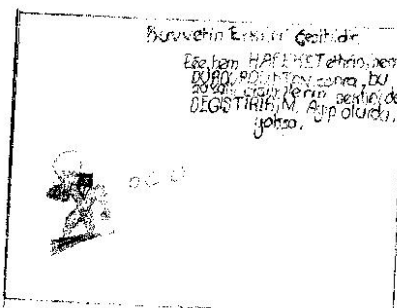 Kuvvetin Etkisi Çeşitlidir
Ee, hem HAREKET ettirip, hem
DURDURDUKTAN sonra, bu
zavallı cisimlerin şeklini de
DEĞİŞTİRİRİM. Ayıp olurdu,
yoksa.